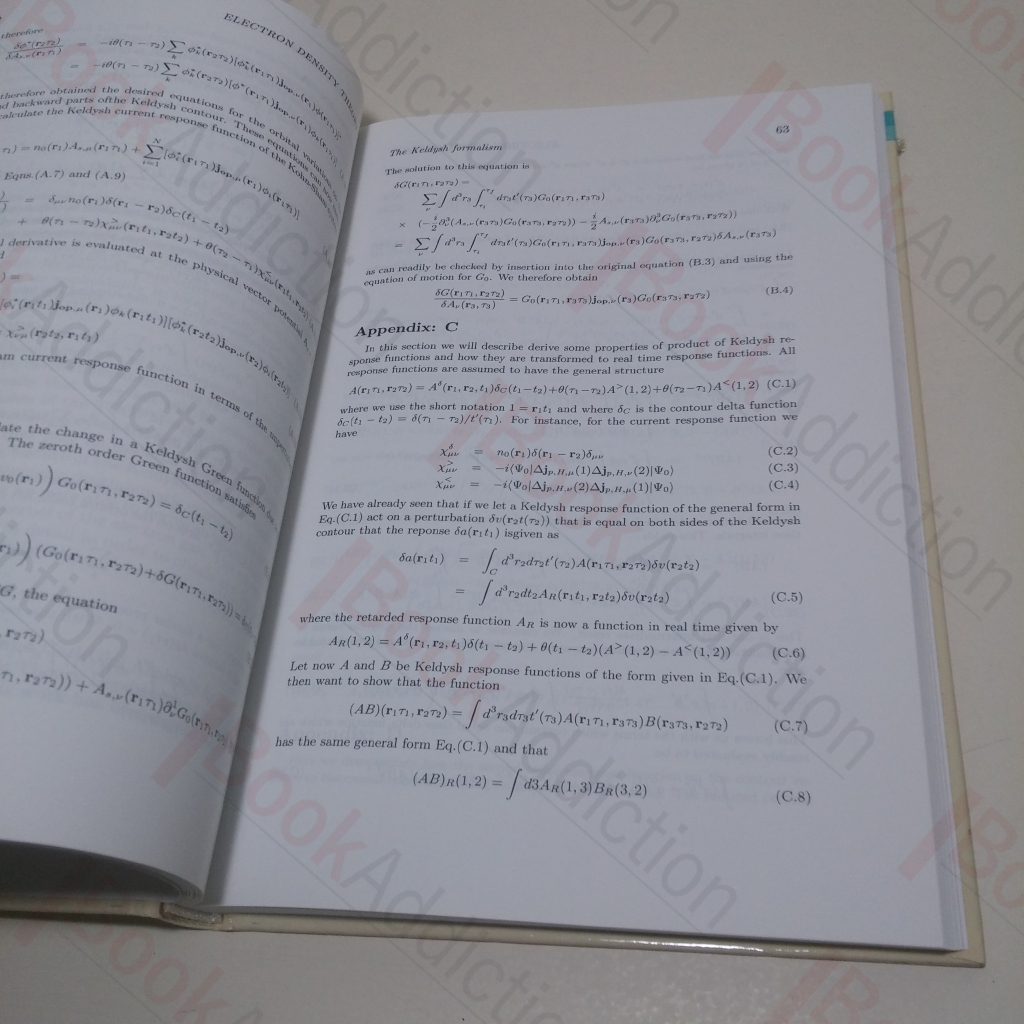 ELECTRON DENSITY THE
therefore
δφ*(r₂τ₂)/δA_{s,ν}(r₁τ₁) = −iθ(τ₁ − τ₂) ∑_k φ*_k(r₂τ₂)[φ*_k(r₁τ₁)j_{op,ν}(r₁)φ_k(r₁τ₁)]*
= −iθ(τ₁ − τ₂) ∑_k φ*_k(r₂τ₂)[φ*(r₁τ₁)j_{op,ν}(r₁)
therefore obtained the desired equations for the orbital variations
d backward parts ofthe Keldysh contour. These equations can
calculate the Keldysh current response function of the Kohn-Sham
τ₁) = n₀(r₁)A_{s,μ}(r₁τ₁) + ∑_{i=1}^N [φ*_i(r₁τ₁)j_{op,μ}(r₁)φ_i(r₁τ₁)]
Eqns.(A.7) and (A.9)
= δ_{μν}n₀(r₁)δ(r₁ − r₂)δ_C(t₁ − t₂)
+ θ(τ₁ − τ₂)χ^>_{μν}(r₁t₁, r₂t₂) + θ(τ₂ − τ₁)χ^<_{μν}(r₁t₁, r₂
l derivative is evaluated at the physical vector potential
) =
[φ*_i(r₁t₁)j_{op,μ}(r₁)φ_k(r₁t₁)][φ*_k(r₂t₂)j_{op,ν}(r₂)φ_i(r₂t₂)]
χ^>_{νμ}(r₂t₂, r₁t₁)
am current response function in terms of the
ate the change in a Keldysh Green function
The zeroth order Green function satisfies
v₀(r₁)) G₀(r₁τ₁, r₂τ₂) = δ_C(t₁ − t₂)
r₁)) (G₀(r₁τ₁, r₂τ₂)+δG(r₁τ₁, r₂τ₂)) =
G, the equation
r₂τ₂)
τ₁, r₂τ₂)) + A_{s,ν}(r₁τ₁)∂¹_νG₀(r₁τ₁, r₂τ₂)
The Keldysh formalism 63
The solution to this equation is
δG(r₁τ₁, r₂τ₂) =
∑_ν ∫ d³r₃ ∫_{τ_i}^{τ_f} dτ₃t′(τ₃)G₀(r₁τ₁, r₃τ₃)
× (−i/2 ∂³_ν(A_{s,ν}(r₃τ₃)G₀(r₃τ₃, r₂τ₂)) − i/2 A_{s,ν}(r₃τ₃)∂³_νG₀(r₃τ₃, r₂τ₂))
= ∑_ν ∫ d³r₃ ∫_{τ_i}^{τ_f} dτ₃t′(τ₃)G₀(r₁τ₁, r₃τ₃)j_{op,ν}(r₃)G₀(r₃τ₃, r₂τ₂)δA_{s,ν}(r₃τ₃)
as can readily be checked by insertion into the original equation (B.3) and using the
equation of motion for G₀. We therefore obtain
δG(r₁τ₁, r₂τ₂)/δA_ν(r₃, τ₃) = G₀(r₁τ₁, r₃τ₃)j_{op,ν}(r₃)G₀(r₃τ₃, r₂τ₂) (B.4)
Appendix: C
In this section we will describe derive some properties of product of Keldysh re-
sponse functions and how they are transformed to real time response functions. All
response functions are assumed to have the general structure
A(r₁τ₁, r₂τ₂) = A^δ(r₁, r₂, t₁)δ_C(t₁−t₂)+θ(τ₁−τ₂)A^>(1, 2)+θ(τ₂−τ₁)A^<(1, 2) (C.1)
where we use the short notation 1 = r₁t₁ and where δ_C is the contour delta function
δ_C(t₁ − t₂) = δ(τ₁ − τ₂)/t′(τ₁). For instance, for the current response function we
have
χ^δ_{μν} = n₀(r₁)δ(r₁ − r₂)δ_{μν} (C.2)
χ^>_{μν} = −i⟨Ψ₀|Δj_{p,H,μ}(1)Δj_{p,H,ν}(2)|Ψ₀⟩ (C.3)
χ^<_{μν} = −i⟨Ψ₀|Δj_{p,H,ν}(2)Δj_{p,H,μ}(1)|Ψ₀⟩ (C.4)
We have already seen that if we let a Keldysh response function of the general form in
Eq.(C.1) act on a perturbation δv(r₂t(τ₂)) that is equal on both sides of the Keldysh
contour that the reponse δa(r₁t₁) isgiven as
δa(r₁t₁) = ∫_C d³r₂dτ₂t′(τ₂)A(r₁τ₁, r₂τ₂)δv(r₂t₂)
= ∫ d³r₂dt₂A_R(r₁t₁, r₂t₂)δv(r₂t₂) (C.5)
where the retarded response function A_R is now a function in real time given by
A_R(1, 2) = A^δ(r₁, r₂, t₁)δ(t₁ − t₂) + θ(t₁ − t₂)(A^>(1, 2) − A^<(1, 2)) (C.6)
Let now A and B be Keldysh response functions of the form given in Eq.(C.1). We
then want to show that the function
(AB)(r₁τ₁, r₂τ₂) = ∫ d³r₃dτ₃t′(τ₃)A(r₁τ₁, r₃τ₃)B(r₃τ₃, r₂τ₂) (C.7)
has the same general form Eq.(C.1) and that
(AB)_R(1, 2) = ∫ d3A_R(1, 3)B_R(3, 2) (C.8)
BookAddiction